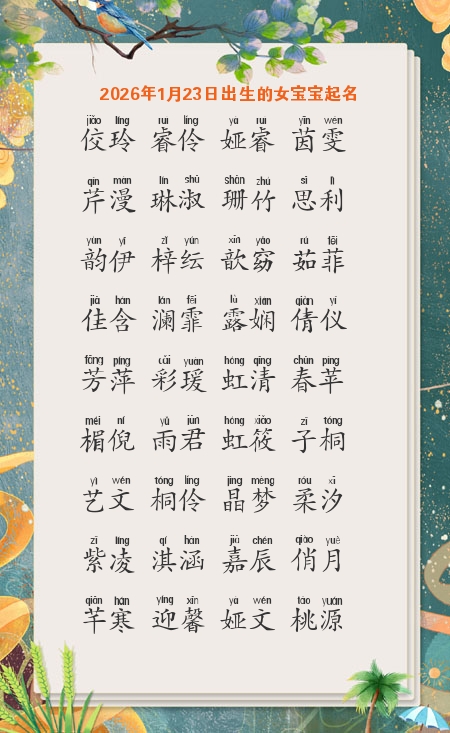 2026年1月23日出生的女宝宝起名
jiǎo líng ruì líng yà ruì yīn wén
佼玲 睿伶 娅睿 茵雯
qín màn lín shū shān zhú sī lì
芹漫 琳淑 珊竹 思利
yùn yī zǐ yún xīn yǎo rú fēi
韵伊 梓纭 歆窈 茹菲
jiā hán lán fēi lù xián qiàn yí
佳含 澜霏 露娴 倩仪
fāng píng cǎi yuàn hóng qīng chūn píng
芳萍 彩瑗 虹清 春苹
méi ní yǔ jūn hóng xiǎo zǐ tóng
楣倪 雨君 虹筱 子桐
yì wén tóng líng jīng mèng róu xī
艺文 桐伶 晶梦 柔汐
zǐ líng qí hán jiā chén qiào yuè
紫凌 淇涵 嘉辰 俏月
qiān hán yíng xīn yà wén táo yuán
芊寒 迎馨 娅文 桃源